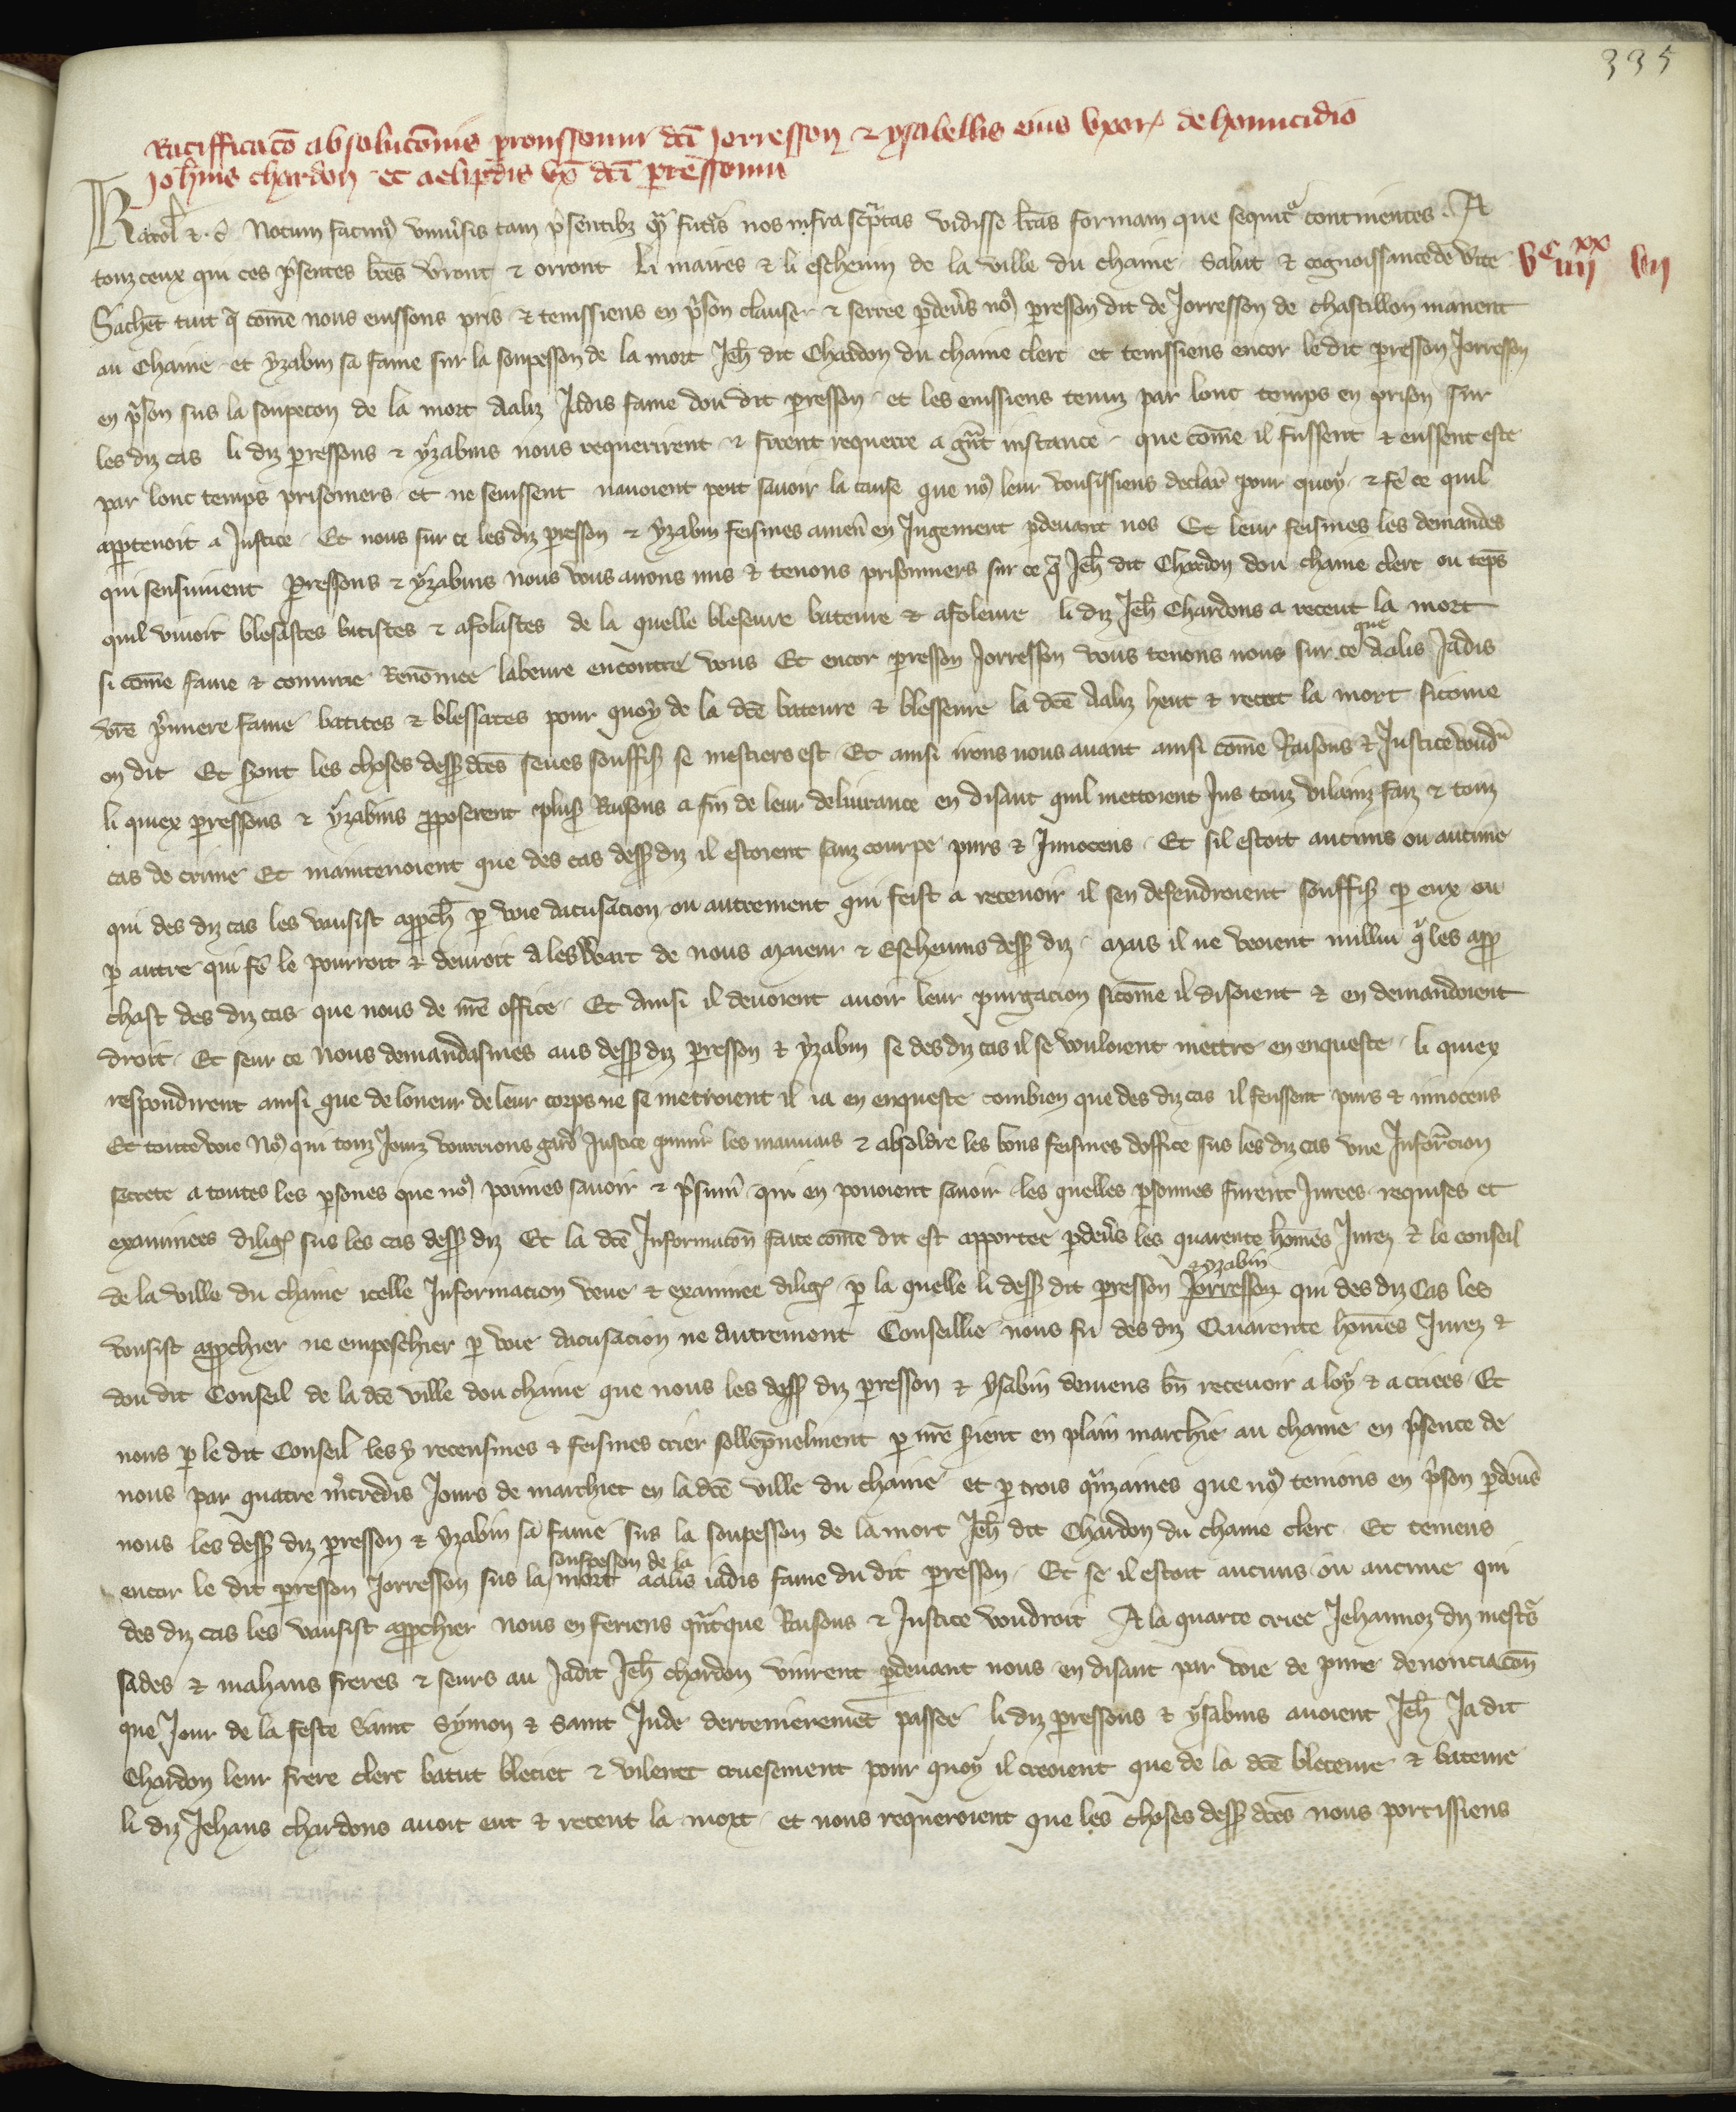 335
Ratifficac̄o absoluc̄onis p̱ressonni dc̄i Jorresson & ysabellis eius uxor̄ de homicidio
Joh̄nis chardon et aelipdis ux̄ dc̄i p̱ressonni
Karol̄ &c̄ Notum facim9 univ̄sis tam p̄sentibȝ q̄ fut̄is nos infra sc̄ptas vidisse lr̄as formam que sequit̄ continentes A
touz ceux qui ces p̄sentes lr̄es v̄ront & orront Li maires & li eschevin de la ville du chaine Salut & cognoissance de v̄ite
Vc iiiixx vii
Sachēt tuit q̄ com̄e nous eussons pris & tenissiens en p̄son clause & serree p̱dev̄s no9 p̱resson dit de Jorresson de chastillon manent
au chaine et yzabin sa fame sur la soupesson de la mort Jeh̄ dit Chardon du chaine clerc et tenissiens encor le dit p̱resson Jorresson
en p̄son sus la soupecon de la mort Aaliz Jadis fame dou dit p̱resson et les eussiens tenuz par lonc temps en prison sur
les diz cas li diz p̱ressons & yzabins nous requerirent & firent requerre a gn̄t instance que com̄e il fussent & eussent este
par lonc temps prisonniers et ne seussent navoient peut savoir la cause que no9 leur vousissiens declar̄ pour quoy & fē ce quil
app̱tenoit a Justice Et nous sur ce les diz p̱resson & yzabin feismes amen̄ en Jugement p̱devant nos Et leur feismes les demandes
qui sensuivent p̱ressons & yzabins nous vous avons mis & tenons prisonniers sur ce q̄ Jeh̄ dit Chardon dou chaine clerc ou tēps
quil vivoit blesastes batistes & afolastes de la quelle bleseure bateure & afoleure li diz Jeh̄ Chardons a receut la mort
si com̄e fame & comune Renom̄ee labeure encontre vous Et encor p̱resson Jorresson vous tenons nous sur ce que Aalis Jadis
vr̄e p̄miere fame batites & blessates pour quoy de la dc̄e bateure & blesseure la dc̄e Aaliz heut & recut la mort si come
on dit Et sront les choses dess9 dc̄es seues souffis̄ se mestiers est Et ainsi irons nous avant ainsi com̄e Raisons & Justice voud̄
li quiex p̱ressons & yzabins p̱poserent plus9 Raisons a fin de leur delivrance en disant quil mettoient Jus touz vilainz faiz & touz
cas de crime Et maintenoient que des cas dess9 diz il estoient sanz courpe purs & Jnnocens Et sil estoit aucuns ou aucune
qui des diz cas les vausist app̱ch̄ p̱ voie dacusacion ou autrement qui feist a recevoir il sen defendroient souffis̄ p̱ eux ou
p̱ autre qui fē le pourroit & devroit A leswart de nous maieur & Eschevins dess9 diz mais il ne veoient nullui q̄ les app̱
chast des diz cas que nous de nr̄e office Et Ainsi il devoient avoir leur purgacion sicom̄e il disoient & en demandoient
droit Et seur ce nous demandasmes aus dess9 diz p̱resson & yzabin se des diz cas il se vouloient mettre en enqueste li quiex
respondirent ainsi que de loneur de leur corps ne se metroient il ia en enqueste combien que des diz cas il feussent purs & innocens
Et toutevoie No9 qui touz Jourz vourrions gard̄ Justice punir les mauvais & absoldre les bons feismes doffice sus les diz cas une Jnfor̄cion
secrete a toutes les p̱sones que no9 poimes savoir & p̄sum̄ qui en pouoient savoir les quelles p̱sonnes furent Jurees requises et
examinees diliḡ sus les cas dess9 diz Et la dc̄e Jnformac̄on faite com̄e dit est apportee p̱dev̄s les quarente hom̄es Jurez & le conseil
de la ville du chaine icelle Jnformacion veue & examinee diliḡ p̱ la quelle li dess9 dit p̱resson Jorresson & yzabin qui des diz Cas les
vousist app̱chier ne empeschier p̱ voie dacusacion ne autremont Conseillie nous fu des diz Quarente hom̄es Jurez &
dou dit Conseil de la dc̄e ville dou chaine que nous les dess9 diz p̱resson & ysabin deviens bn̄ recevoir a loy & a criees Et
nous p̱ le dit Conseil les y receusmes & feismes crier sollēpnelment p̱ nr̄e s̱ient en plain marchie au chaine en p̄sence de
nous par quatre m̄credis Jours de marchiet en la dc̄e ville du chaine et p̱ trois q̄nzaines que no9 teniens en p̄son p̱dev̄s
nous les dess9 diz p̱resson & yzabin sa fame sus la soupesson de la mort Jeh̄ dit Chardon du chaine clerc Et teniens
encor le dit p̱resson Jorresson sus la soupesson de la mort aalis iadis fame du dit p̱resson Et se il estoit aucuns ou aucune qui
des diz cas les vausist app̱chier nous en feriens qn̄tque Raisons & Justice voudroit A la quarte criee Jehannoz diz mest̄
sades & mahaus freres & seurs au Jadit Jeh̄ chardon vinrent p̱devant nous en disant par voie de pure denonciac̄on
que Jour de la feste Saint Symon & saint Jude derrenieremēt passee li diz p̱ressons & ysabins avoient Jeh̄ Ja dit
Chardon leur frere clerc batut bleciet & vilenet cruesement pour quoy il creoient que de la dc̄e bleceure & bateure
li diz Jehans chardons avoit eut & receut la mort et nous requeroient que les choses dess9 dc̄es nous portissiens